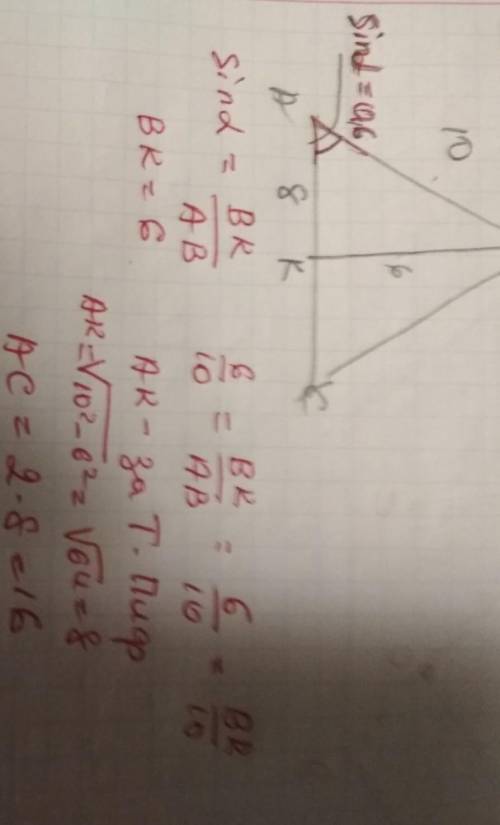 sinα = 0,6
10
A
8
K
6
C
sinα = BK/AB
6/10 = BK/AB = 6/10 = BK/10
BK = 6
AK - за Т. Піф
AK = √10² - 6² = √64 = 8
AC = 2 · 8 = 16